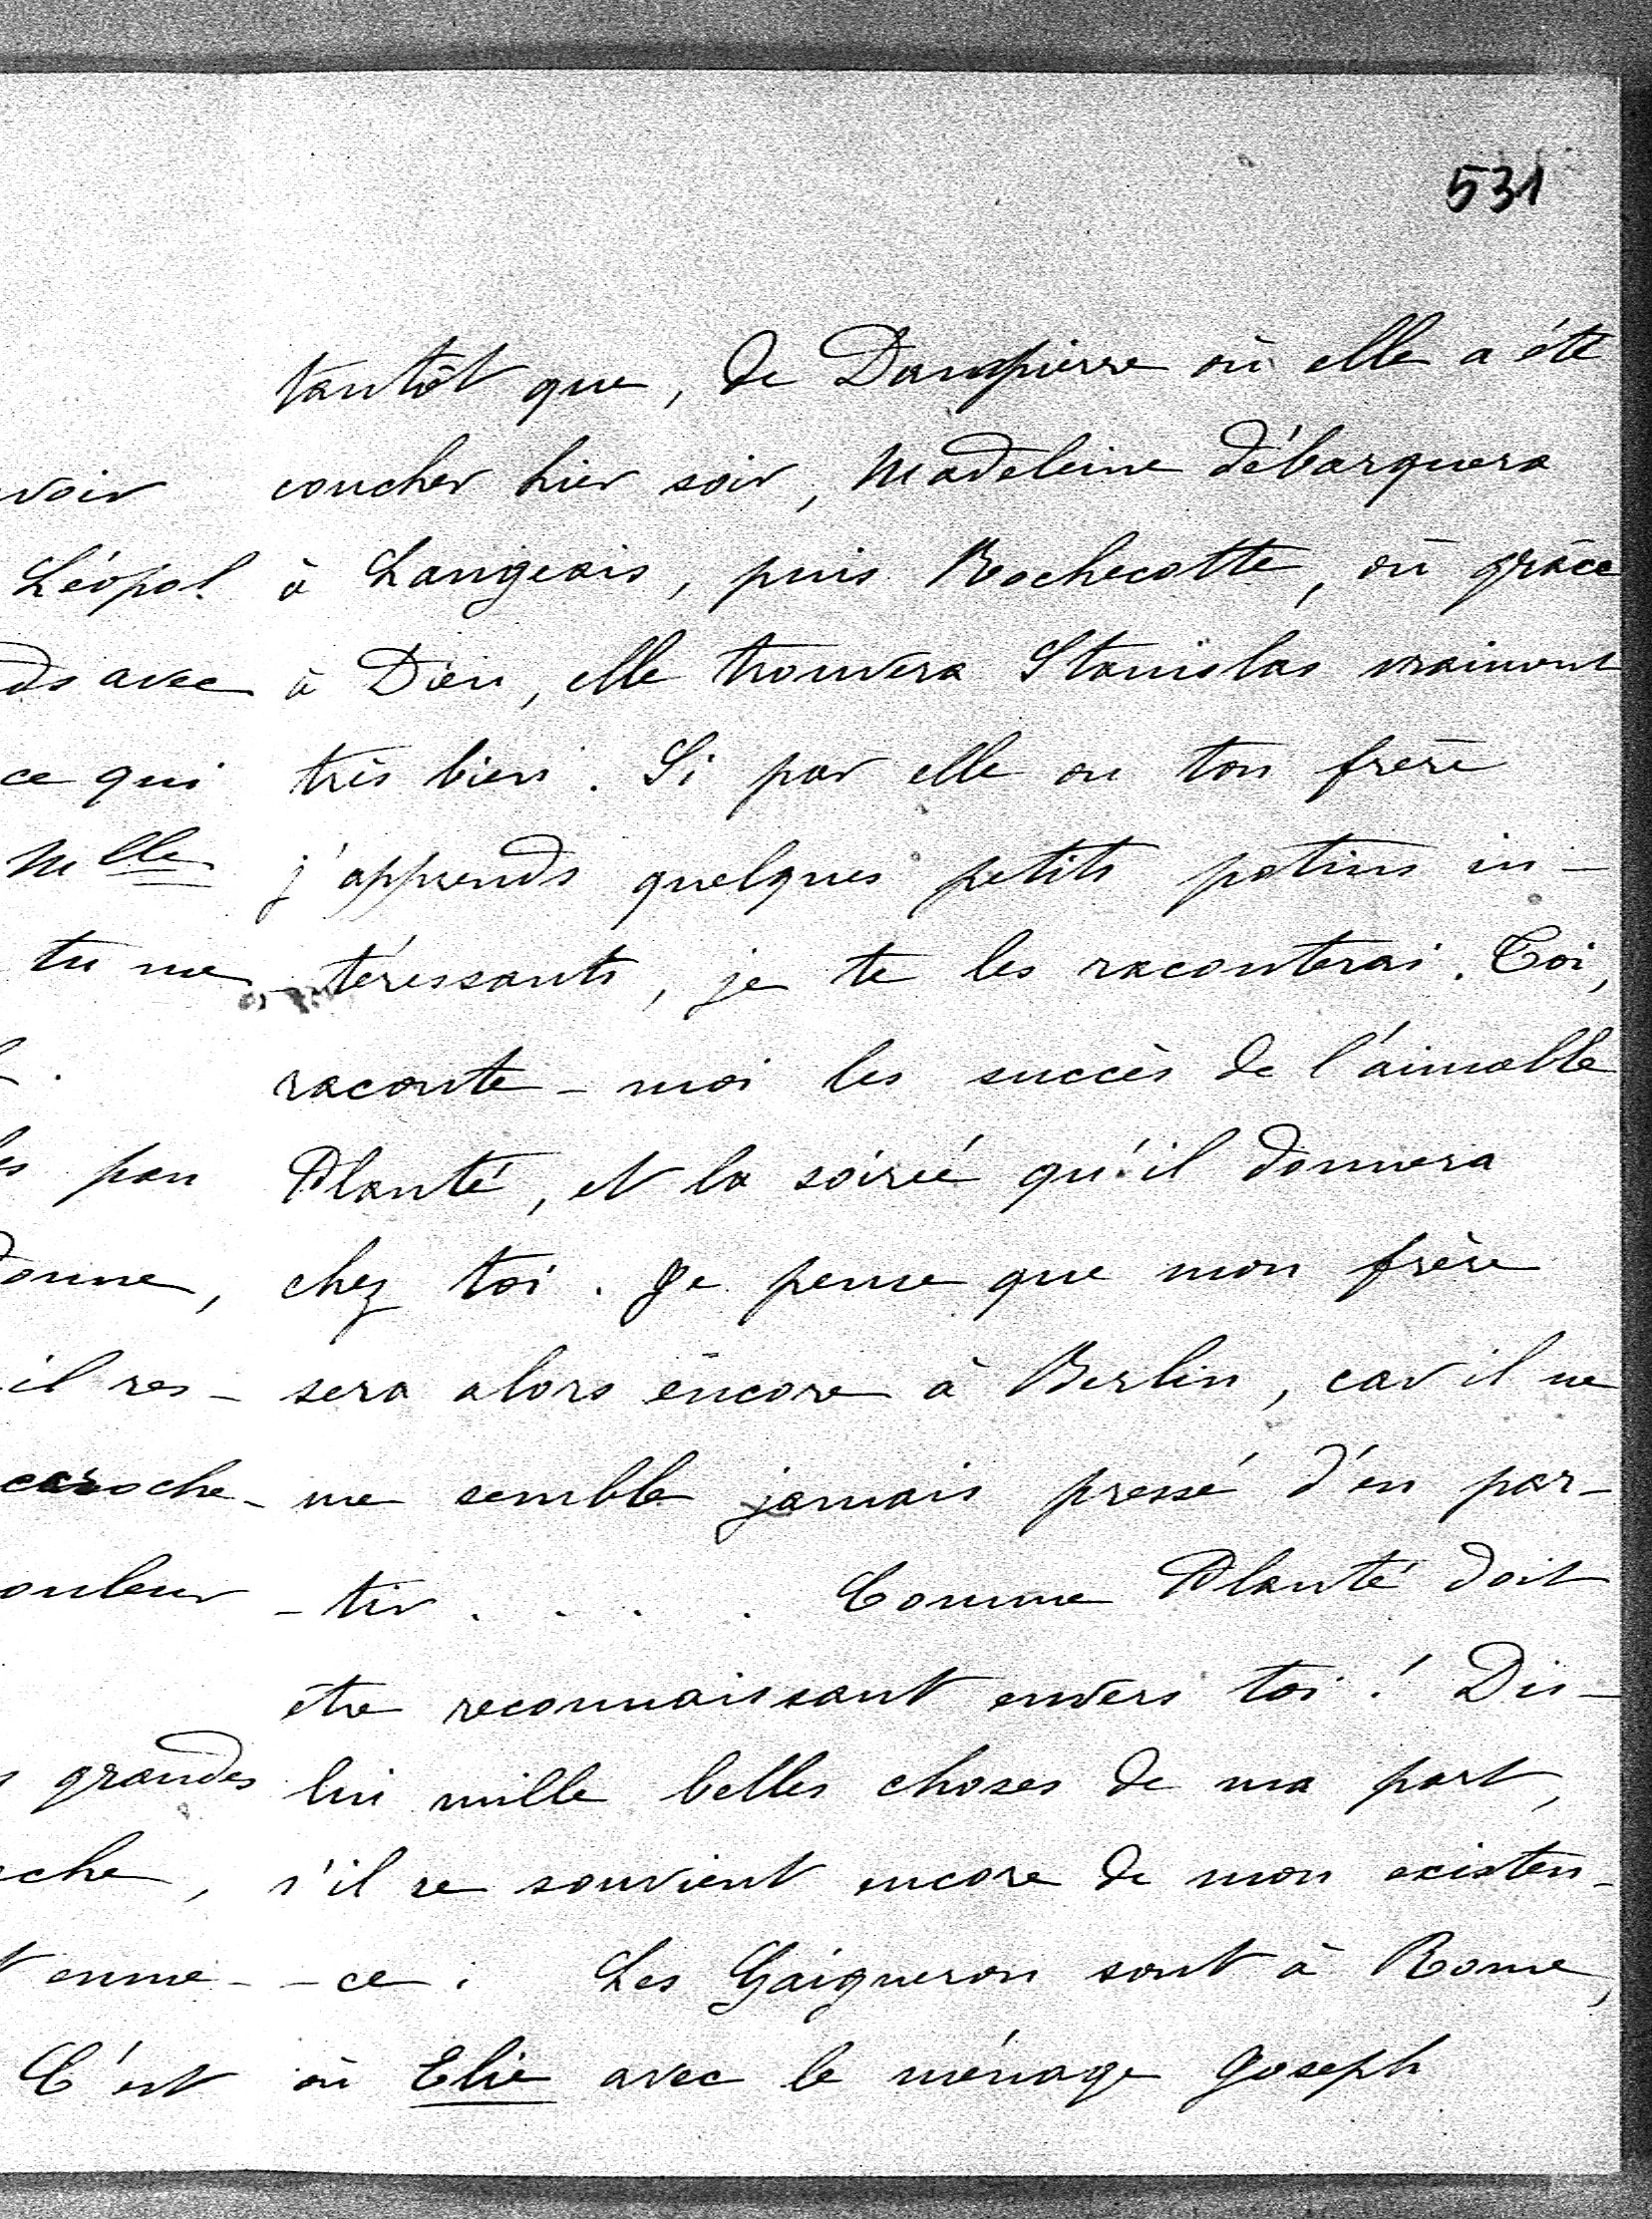 531
tantôt que, de Dampierre où elle a été
coucher hier soir, Madeleine débarquera
à Langeais, puis Rochecotte, où grâce
à Dieu, elle trouvera Stanislas vraiment
très bien. Si par elle ou ton frère
j'apprends quelques petits potins in-
-téressants, je te les raconterai. Toi,
raconte-moi les succès de l'aimable
Planté, et la soirée qu'il donnera
chez toi. Je pense que mon frère
sera alors encore à Berlin, car il ne
me semble jamais pressé d'en par-
-tir. . . . . Comme Planté doit
être reconnaissant envers toi! Dis-
lui mille belles choses de ma part,
s'il se souvient encore de mon existen-
-ce. Les Gaigneron sont à Rome,
où Elie avec le ménage Joseph
voir
Léopol
ds avec
ce qui
Mlle
tu me
peu
onne,
il res-
che-
ouleur
grandes
che,
enne-
C'est